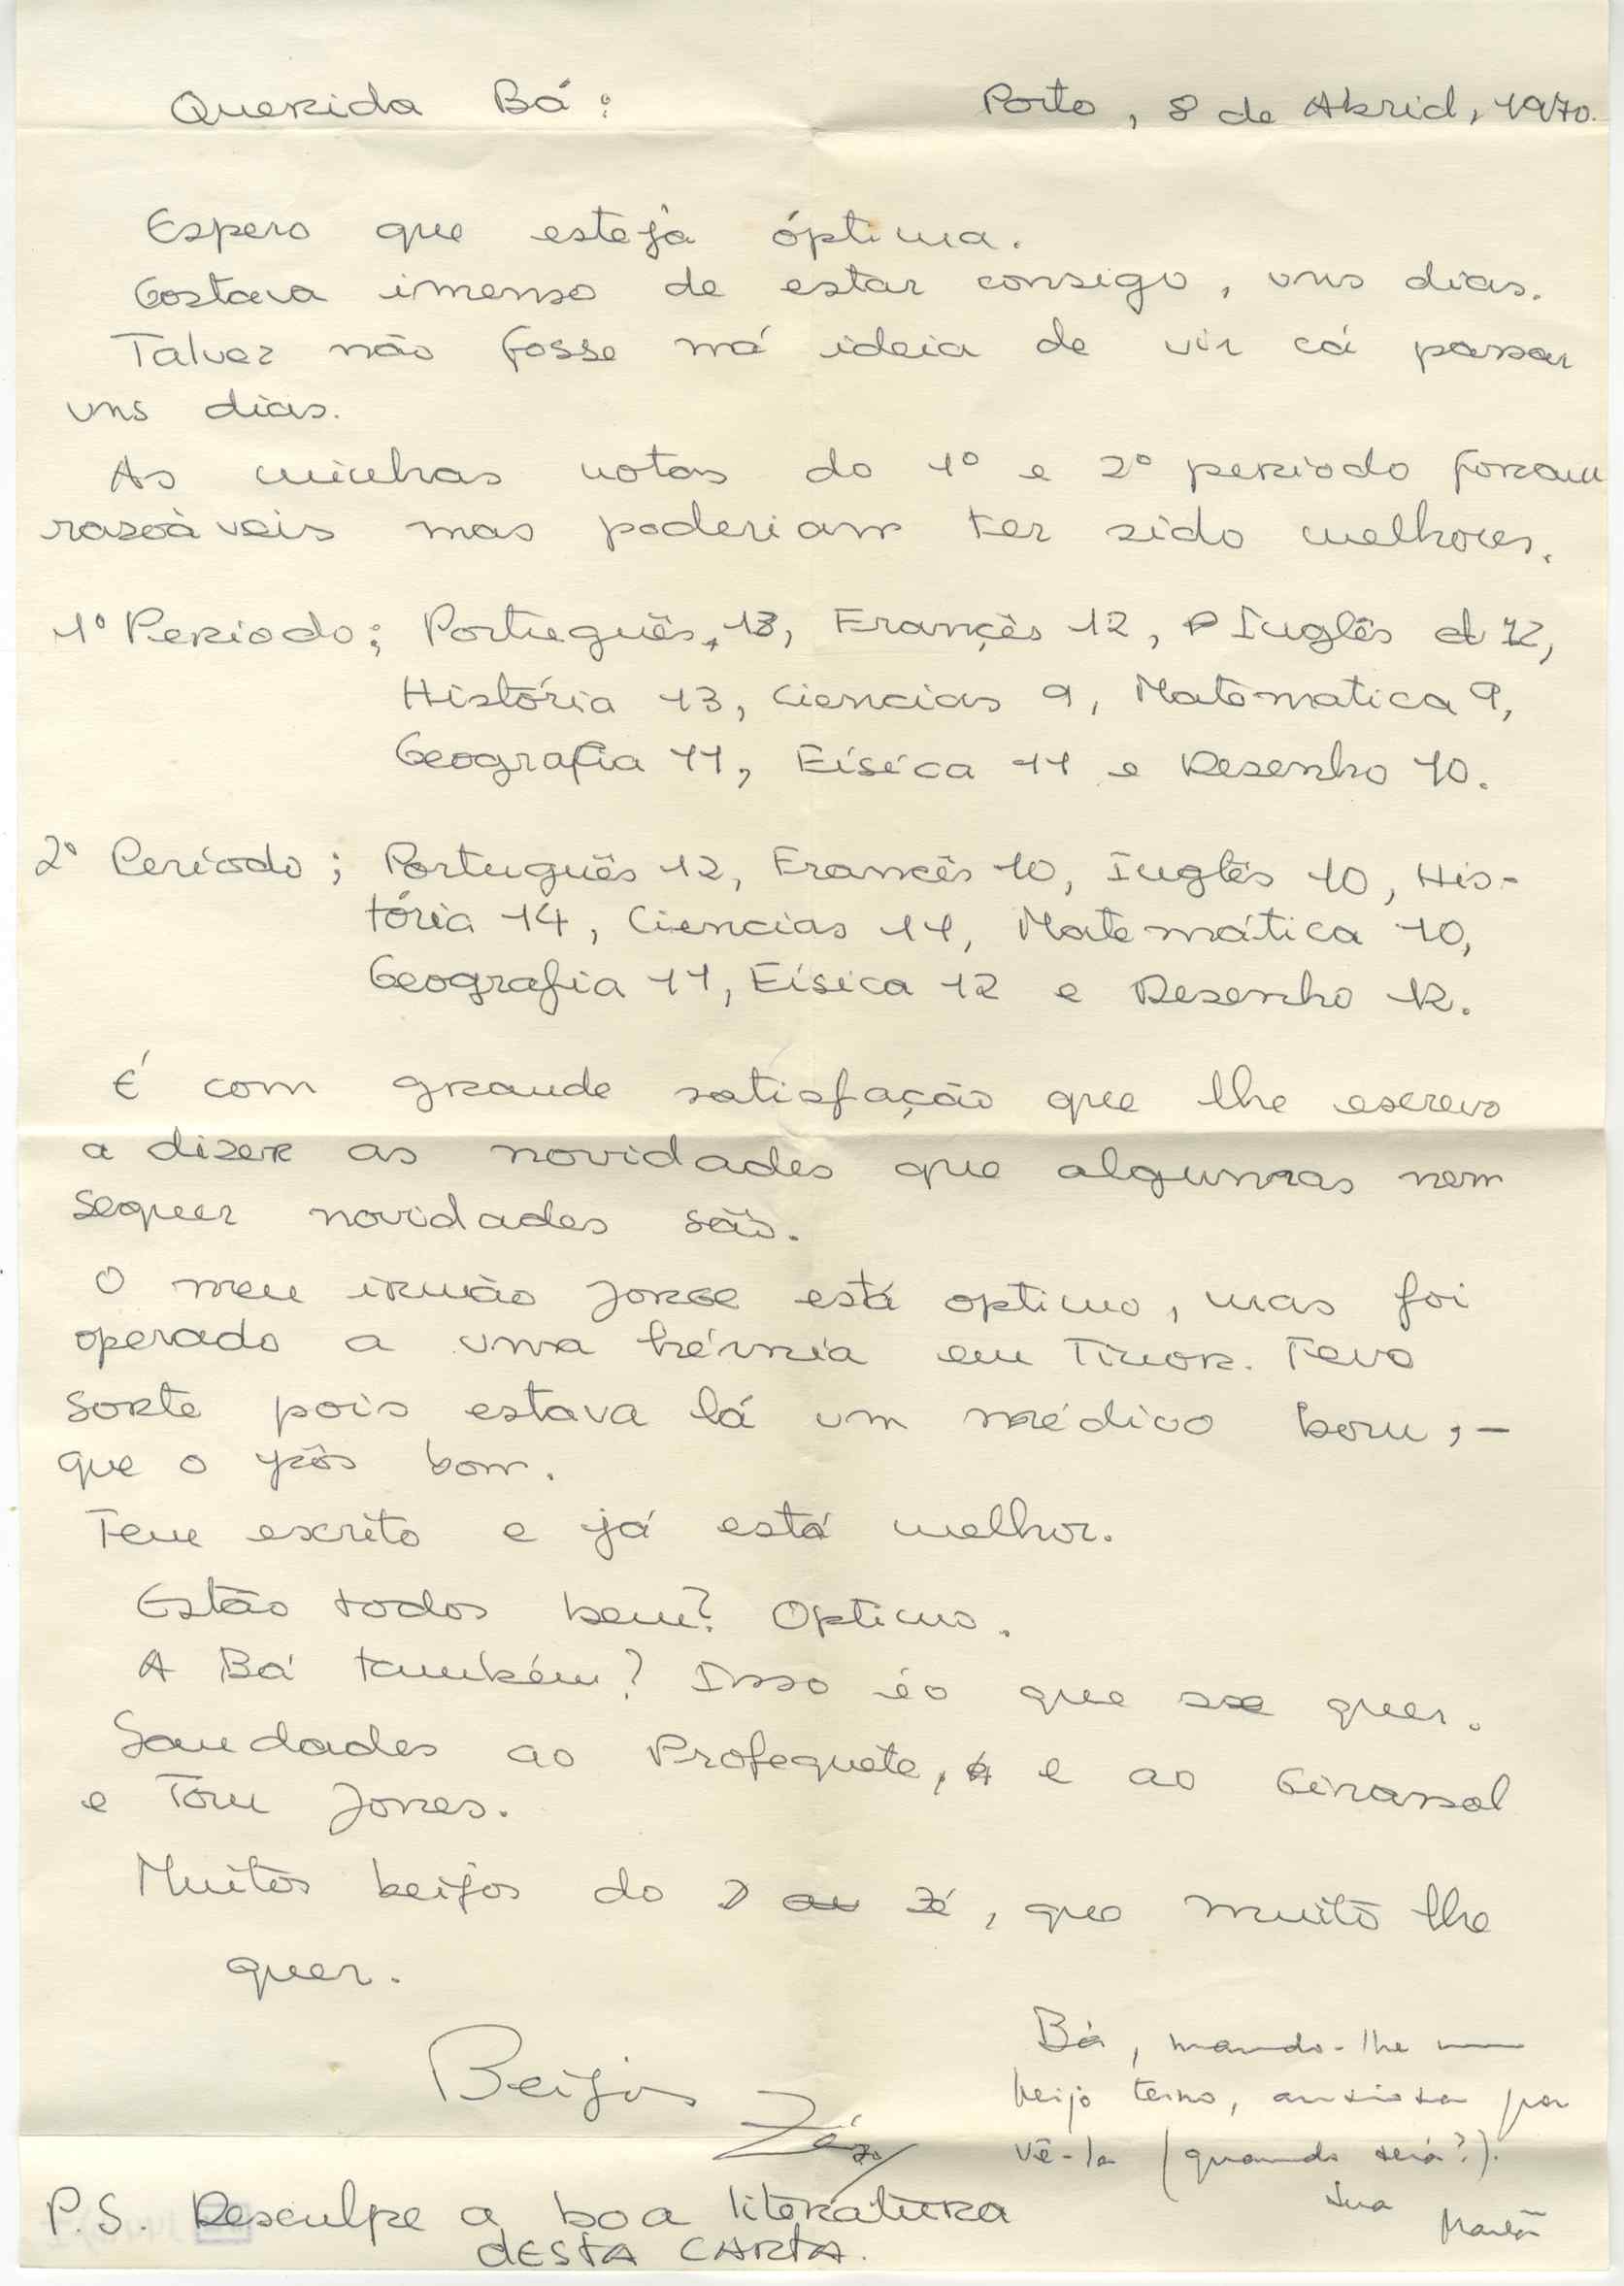 Querida Bá: Porto, 8 de Abrid, 1970.
Espero que esteja óptima.
Gostava imenso de estar consigo, uns dias.
Talvez não fosse má ideia de vir cá passar
uns dias.
As minhas notas do 1º e 2º periodo foram
razoàveis mas poderiam ter sido melhores.
1º Periodo; Português, 13, Françês 12, Inglês 12,
História 13, Ciencias 9, Matematica 9,
Geografia 11, Física 11 e Desenho 10.
2º Período; Português 12, Francês 10, Inglês 10, His-
tória 14, Ciencias 11, Matemática 10,
Geografia 11, Física 12 e Desenho 12.
É com grande satisfação que lhe escrevo
a dizer as novidades que algumas nem
sequer novidades são.
O meu irmão Jorge está optimo, mas foi
operado a uma hérnia em Timor. Teve
sorte pois estava lá um médico bom, -
que o pôs bom.
Tem escrito e já está melhor.
Estão todos bem? Optimo.
A Bá também? Isso é o que se quer.
Saudades ao Profequete, e ao Girassol
e Tom Jones.
Muitos beijos do Zé, que muito lhe
quer.
Beijos
Zé
Bá, mando-lhe um
beijo terno, ansiosa por
vê-la (quando será?).
sua
P.S. Desculpe a boa literatura
DESTA CARTA.